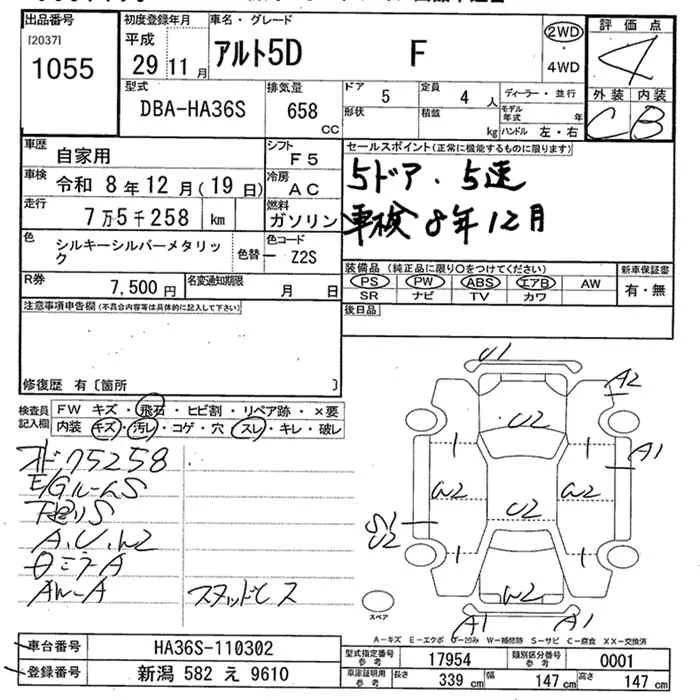 出品番号 初度登録年月 車名・グレード 評価点
[2037] 平成 アルト5D F 2WD ・ 4WD 4
1055 29 11 月
型式 排気量 ドア 5 定員 4 人 ディーラー・並行 外装 内装
DBA-HA36S 658 CC 形状 積載 kg モデル年式 年 C B
ハンドル 左・右
車歴 自家用 シフト F5 セールスポイント(正常に機能するものに限ります)
車検 令和 8年 12月(19日) 冷房 AC 5ドア・5速
走行 7万5千258 km 燃料 ガソリン 車検8年12月
色 シルキーシルバーメタリック 色替 − 色コード Z2S
装備品(純正品に限り○をつけてください) 新車保証書
R券 7,500円 名変通知期限 月 日 PS PW ABS エアB AW 有・無
SR ナビ TV カワ
注意事項申告欄(不具合内容等は具体的に記入して下さい) 後日品
修復歴 有〔箇所 〕
検査員記入欄 FW キズ・飛石・ヒビ割・リペア跡・×要
内装 キズ・汚レ・コゲ・穴・スレ・キレ・破レ
75258
E/GルームS
下廻りS
A.U.W2
スタッドレス
U1
A2
U2
A1
W2 U2 W2
S1
U2
W2
A1 A1
スペア
A−キズ E−エクボ U−凹み W−補修跡 S−サビ C−腐食 XX−交換済
車台番号 HA36S-110302
登録番号 新潟 582 え 9610
型式指定番号 参考 17954 類別区分番号 参考 0001
車庫証明用 参考 長さ 339 cm 幅 147 cm 高さ 147 cm